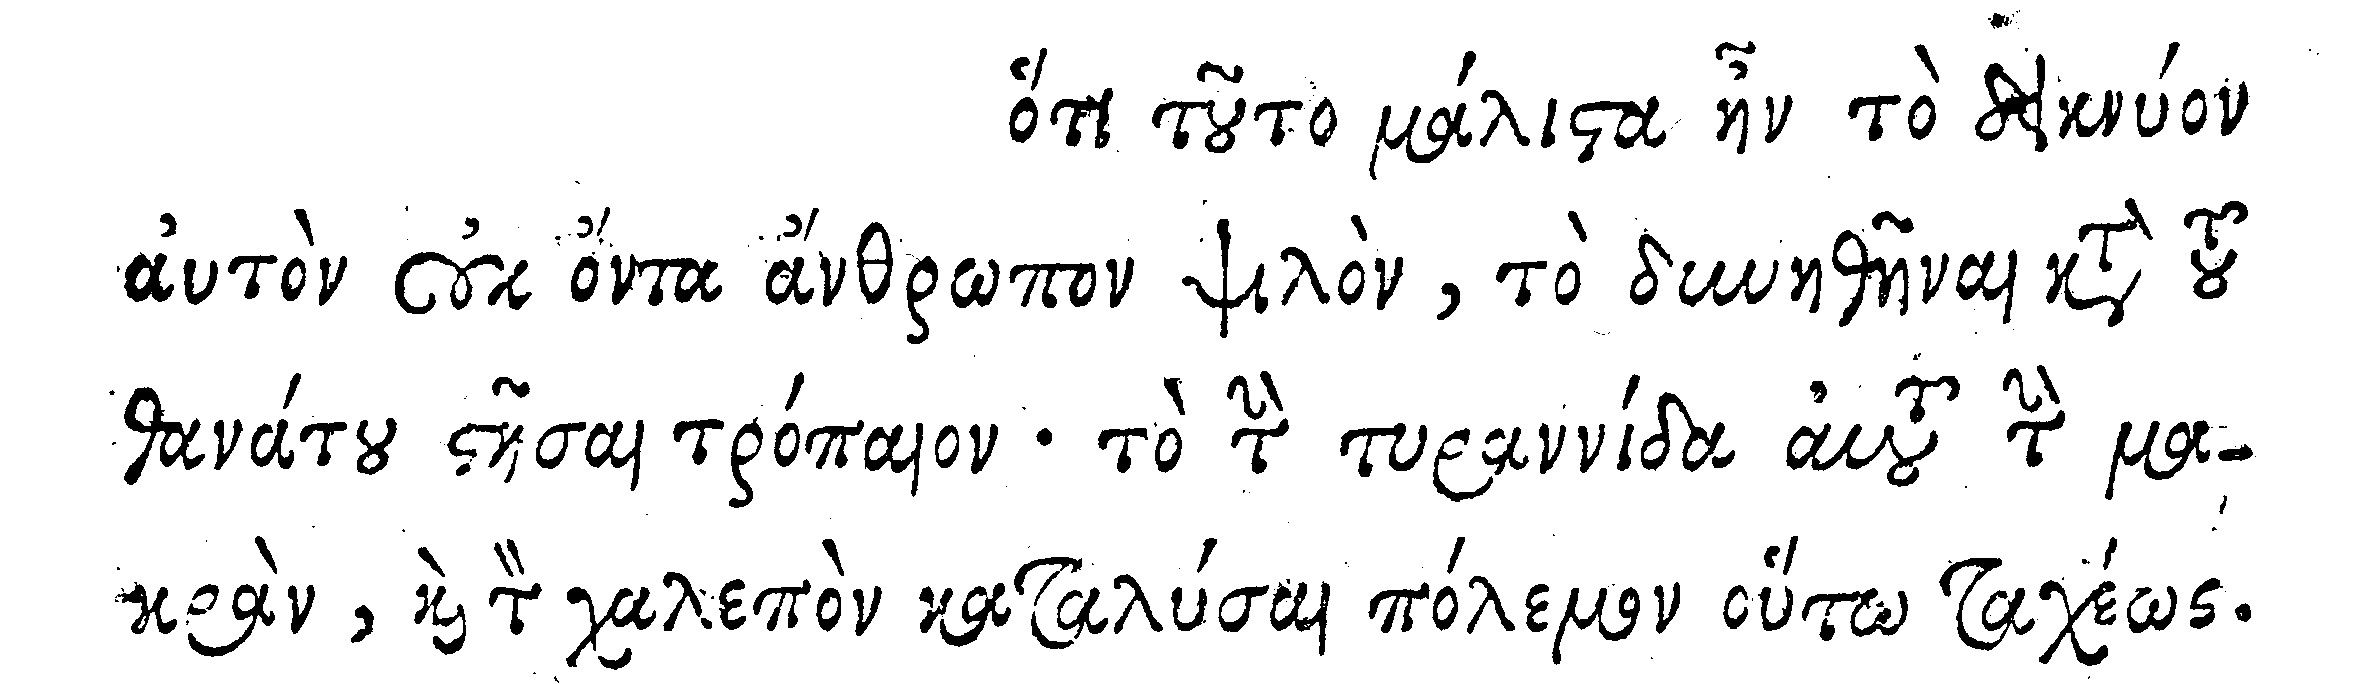 ὅτι τοῦτο μάλιστα ἦν τὸ δεικνύον
ἀυτὸν οὐκ ὄντα ἄνθρωπον ψιλὸν, τὸ δυνηθῆναι κατὰ τοῦ
θανάτου στῆσαι τρόπαιον· τὸ τὴν τυραννίδα ἀυτοῦ τὴν μα-
κρὰν, καὶ τὸν χαλεπὸν καταλύσαι πόλεμον οὕτω ταχέως.